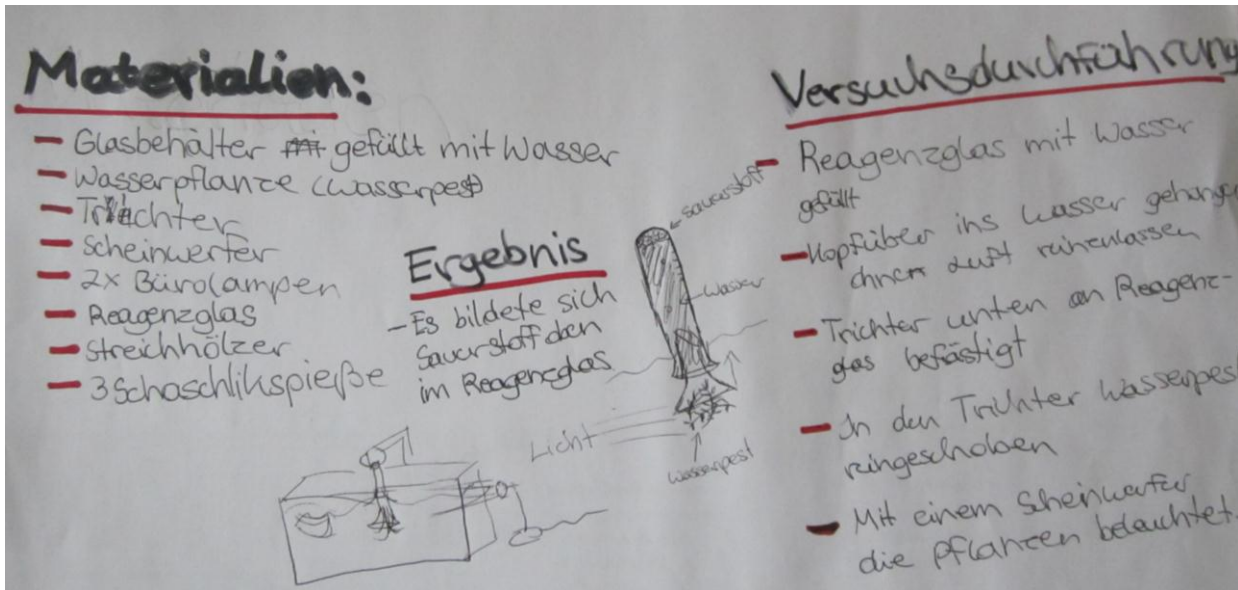 Materialien:
– Glasbehälter gefüllt mit Wasser
– Wasserpflanze (Wasserpest)
– Trichter
– Scheinwerfer
– 2x Bürolampen
– Reagenzglas
– Streichhölzer
– 3 Schaschlikspieße
Ergebnis
– Es bildete sich
Sauerstoff oben
im Reagenzglas
Sauerstoff
Wasser
Licht
Wasserpest
Versuchsdurchführung
– Reagenzglas mit Wasser
gefüllt
– Kopfüber ins Wasser gehangen
ohne Luft reinzulassen
– Trichter unten an Reagenz-
glas befästigt
– In den Trichter Wasserpest
reingeschoben
– Mit einem Scheinwerfer
die Pflanzen beleuchtet.